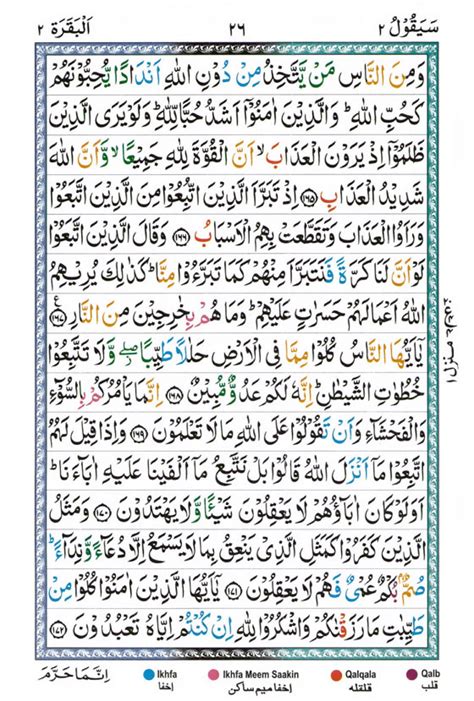 سَيَقُوْلُ ٢ ٢٦ اَلْبَقَرَة ٢
وَمِنَ النَّاسِ مَنْ يَّتَّخِذُ مِنْ دُوْنِ اللّٰهِ اَنْدَادًا يُّحِبُّوْنَهُمْ
كَحُبِّ اللّٰهِ ؕ وَالَّذِيْنَ اٰمَنُوْۤا اَشَدُّ حُبًّا لِّلّٰهِ ؕ وَلَوْ يَرَى الَّذِيْنَ
ظَلَمُوْۤا اِذْ يَرَوْنَ الْعَذَابَ ۙ اَنَّ الْقُوَّةَ لِلّٰهِ جَمِيْعًا ۙ وَّاَنَّ اللّٰهَ
شَدِيْدُ الْعَذَابِ ﴿۱۶۵﴾ اِذْ تَبَرَّاَ الَّذِيْنَ اتُّبِعُوْا مِنَ الَّذِيْنَ اتَّبَعُوْا
وَرَاَوُا الْعَذَابَ وَتَقَطَّعَتْ بِهِمُ الْاَسْبَابُ ﴿۱۶۶﴾ وَقَالَ الَّذِيْنَ اتَّبَعُوْا
لَوْ اَنَّ لَنَا كَرَّةً فَنَتَبَرَّاَ مِنْهُمْ كَمَا تَبَرَّءُوْا مِنَّا ؕ كَذٰلِكَ يُرِيْهِمُ
اللّٰهُ اَعْمَالَهُمْ حَسَرٰتٍ عَلَيْهِمْ ؕ وَمَا هُمْ بِخٰرِجِيْنَ مِنَ النَّارِ ﴿۱۶۷﴾ ع
يٰۤاَيُّهَا النَّاسُ كُلُوْا مِمَّا فِى الْاَرْضِ حَلٰلًا طَيِّبًا ۖ وَّلَا تَتَّبِعُوْا
خُطُوٰتِ الشَّيْطٰنِ ؕ اِنَّهٗ لَكُمْ عَدُوٌّ مُّبِيْنٌ ﴿۱۶۸﴾ اِنَّمَا يَاْمُرُكُمْ بِالسُّوْٓءِ
وَالْفَحْشَآءِ وَاَنْ تَقُوْلُوْا عَلَى اللّٰهِ مَا لَا تَعْلَمُوْنَ ﴿۱۶۹﴾ وَاِذَا قِيْلَ لَهُمُ
اتَّبِعُوْا مَاۤ اَنْزَلَ اللّٰهُ قَالُوْا بَلْ نَتَّبِعُ مَاۤ اَلْفَيْنَا عَلَيْهِ اٰبَآءَنَا ؕ
اَوَلَوْ كَانَ اٰبَآؤُهُمْ لَا يَعْقِلُوْنَ شَيْئًا وَّلَا يَهْتَدُوْنَ ﴿۱۷۰﴾ وَمَثَلُ
الَّذِيْنَ كَفَرُوْا كَمَثَلِ الَّذِىْ يَنْعِقُ بِمَا لَا يَسْمَعُ اِلَّا دُعَآءً وَّنِدَآءً ؕ
صُمٌّۢ بُكْمٌ عُمْىٌ فَهُمْ لَا يَعْقِلُوْنَ ﴿۱۷۱﴾ يٰۤاَيُّهَا الَّذِيْنَ اٰمَنُوْا كُلُوْا مِنْ
طَيِّبٰتِ مَا رَزَقْنٰكُمْ وَاشْكُرُوْا لِلّٰهِ اِنْ كُنْتُمْ اِيَّاهُ تَعْبُدُوْنَ ﴿۱۷۲﴾
منزل ١
اِنَّمَا حَرَّمَ
Ikhfa اخفا
Ikhfa Meem Saakin اخفا ميم ساكن
Qalqala قلقله
Qalb قلب